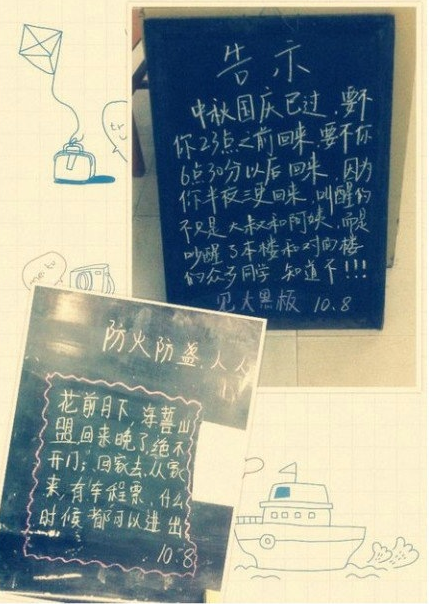 告示
中秋国庆已过,要不
你23点之前回来,要不你
6点30分以后回来,因为
你半夜三更回来,叫醒的
不只是大叔和阿姨,而是
吵醒了本楼和对面楼
的众多同学,知道下!!!
见大黑板 10.8
防火防盗,人人
花前月下,海誓山
盟回来晚了,绝不
开门;回家去,从家
来,有车程票,什么
时候都可以进出
10.8